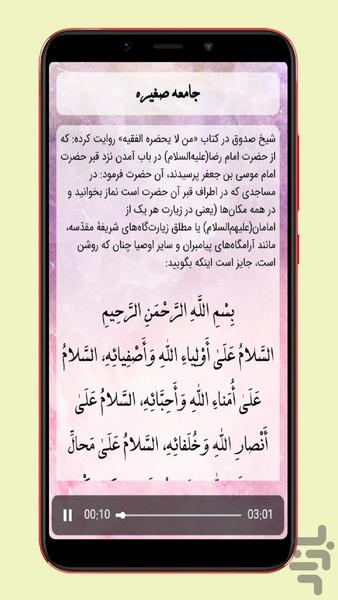 جامعه صغیره
شیخ صدوق در کتاب «من لا یحضره الفقیه» روایت کرده: که
از حضرت امام رضا(علیه‌السلام) در باب آمدن نزد قبر حضرت
امام موسی بن جعفر پرسیدند، آن حضرت فرمود: در
مساجدی که در اطراف قبر آن حضرت است نماز بخوانید و
در همه مکان‌ها (یعنی در زیارت هر یک از
امامان(علیهم‌السلام) یا مطلق زیارت‌گاه‌های شریفهٔ مقدّسه،
مانند آرامگاه‌های پیامبران و سایر اوصیا چنان که روشن
است، جایز است اینکه بگویید:
بِسْمِ اللَّهِ الرَّحْمَنِ الرَّحِيمِ
السَّلامُ عَلَىٰ أَوْلِياءِ اللّٰهِ وَأَصْفِيائِهِ، السَّلامُ
عَلَىٰ أُمَناءِ اللّٰهِ وَأَحِبَّائِهِ، السَّلامُ عَلَىٰ
أَنْصارِ اللّٰهِ وَخُلَفائِهِ، السَّلامُ عَلَىٰ مَحالِّ
00:10
03:01
بازار